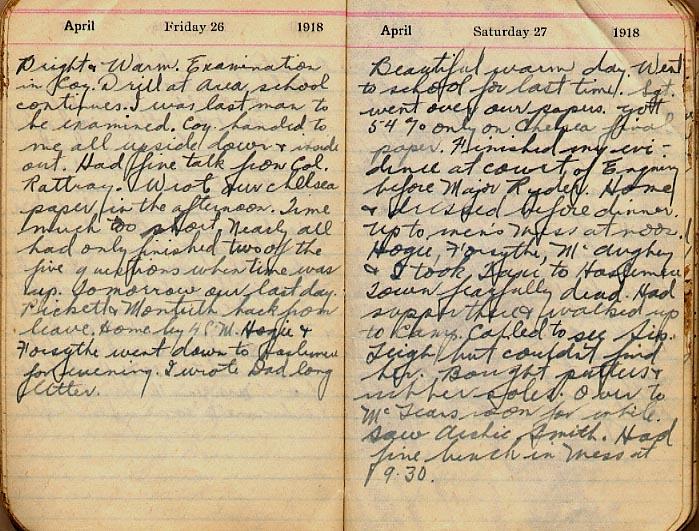 April Friday 26 1918
Bright & Warm. Examination
in Coy. Drill at area school
continues. I was last man to
be examined. Coy. handed to
me all upside down & inside
out. Had fine talk from Col.
Rattray. Wrote our Chelsea
paper in the afternoon. Time
much too short. Nearly all
had only finished two of the
five questions when time was
up. Tomorrow our last day.
Plickett & Monteith back from
leave. Home by 4 P.M. Hogie &
Forsythe went down to Haslemere
for evening. I wrote Dad long
letter.
April Saturday 27 1918
Beautiful warm day. Went
to school for last time. Sgt.
went over our papers. Got
54% only on Chelsea final
paper. Finished my evi-
dence at court of Enquiry
before Major Ryder. Home
& dressed before dinner.
Up to men's Mess at noon.
Hogie, Forsythe, McAughey
& I took taxi to Haslemere
Town fearfully dead. Had
supper there & walked up
to Camp. Called to see Sis.
Leigh but couldn't find
her. Bought puttees &
rubber soles. Over to
McTears room for while.
Saw Archie Smith. Had
fine lunch in Mess at
9.30.